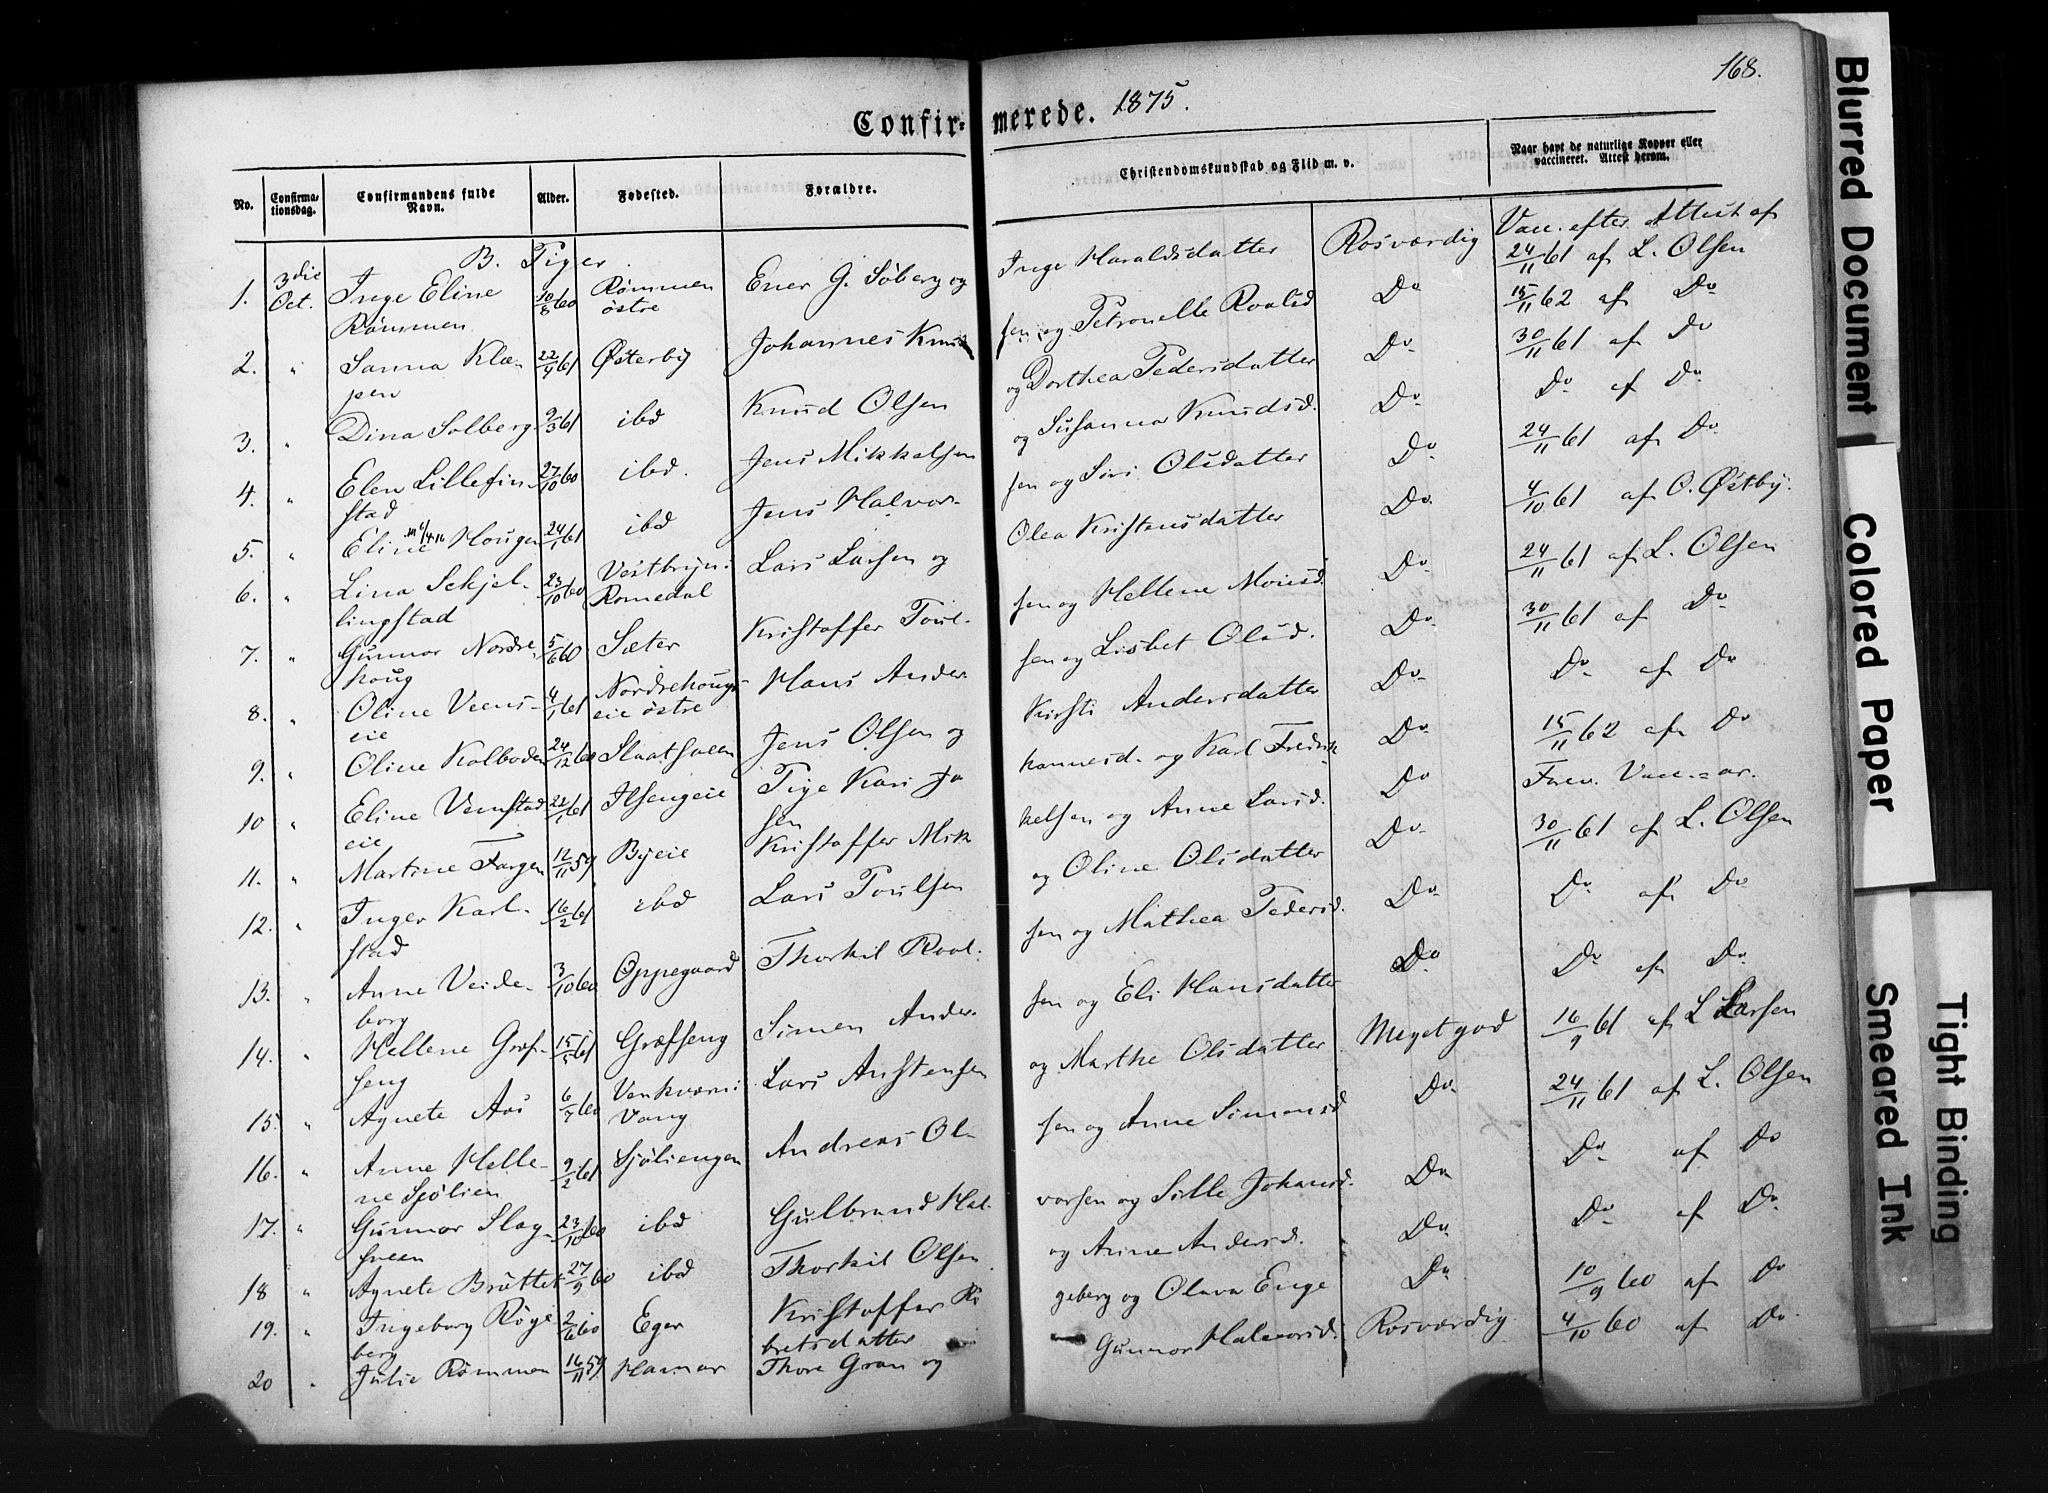 168.
Confirmerede. 1875.
No. Confirmationsdag. Confirmandens fulde Navn. Alder. Fødested. Forældre. Christendomskundskab og Flid m. v. Naar havt de naturlige Kopper eller vaccineret. Attest herom.
B. Piger.
Vacc. efter Attest af
1. 3die Oct. Inge Eline Rømmen 10/8 60 Rømmen østre Ener G. Søberg og Inge Haraldsdatter Rosværdig 24/11 61 af L. Olsen
2. " Sanna Klæpen 22/4 61 Østerby Johannes Knudsen og Petronelle Roalsd Do 15/11 62 af Do
3. " Dina Solberg 9/3 61 ibd Knud Olsen og Dorthea Pedersdatter Do 30/11 61 af Do
4. " Elen Lillefinstad 27/10 60 ibd. Jens Mikkelsen og Susanna Knudsd. Do Do af Do
5. " Eline Hougen 24/1 61 ibd Jens Halvorsen og Siri Olsdatter Do 24/11 61 af Do
6. " Lina Sckjellingstad 23/10 60 Vestbryn i Romedal Lars Larsen og Olea Kristensdatter Do 4/10 61 af O. Østby.
7. " Gunnor Nordrehoug 5/6 60 Sæter Kristoffer Poulsen og Hellene Monsd. Do 24/11 61 af L. Olsen
8. " Oline Veenseie 4/1 61 Nordrehougseie østre Hans Andersen og Lisbet Olsd. Do 30/11 61 af Do
9. " Oline Kolboden 24/12 60 Slaatsveen Jens Olsen og Kirsti Andersdatter Do Do af Do
10 " Eline Vemstadeie 21/1 61 Ilsengeie Pige Kari Johannesd. og Karl Fredriksen Do 15/11 62 af Do
11. " Martine Fargen 12/11 59 Byeie Kristoffer Mikkelsen og Anne Larsd. Do Forev. Vacc.-ar.
12. " Inger Karlstad 16/2 61 ibd Lars Poulsen og Oline Olsdatter Do 30/11 61 af L. Olsen
13. " Anne Veideborg 3/10 60 Oppegaard Thorkil Roalsen og Mathea Pedersd. Do Do af Do
14. " Hellene Græfseng 15/1 61 Græfseng Simen Andersen og Eli Hansdatter Do Do af Do
15. " Agnete Aas 6/7 60 Venkværn i Vang Lars Anstensen og Marthe Olsdatter Meget god 16/9 61 af L Larsen
16. " Anne Hellene Sjølien 9/2 61 Sjøliengen Andreas Olsen og Anne Simensd Do 24/11 61 af L. Olsen
17. " Gunnor Slagsveen 23/10 60 ibd Gulbrand Halvorsen og Sille Johansd. Do Do af Do
18 " Agnete Bråttet 27/9 60 ibd Thorkil Olsen og Anne Andersd. Do Do af Do
19. " Ingeborg Røgeberg 2/6 60 Eger Kristoffer Røgeberg og Olava Engebretsdatter Do 10/9 60 af Do
20 " Julie Rømmen 16/11 59 Hamar Thore Gran og Gunnor Halvorsd. Rosværdig 4/10 60 af Do
Blurred Document
Colored Paper
Smeared Ink
Tight Binding